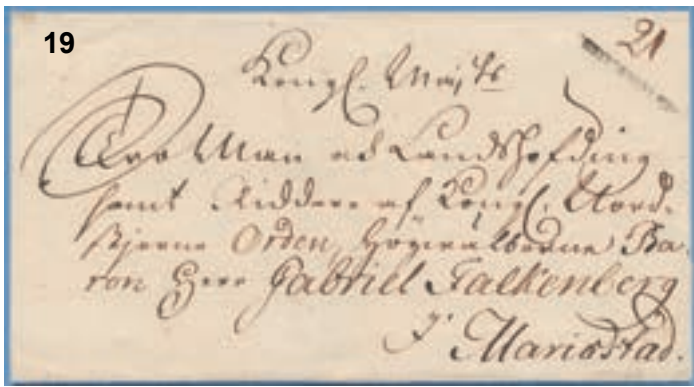 19
21
Kongl. Maj:ts
Tro Man och Landshöfding
samt Riddare af Kongl. Nord-
stjerne Orden, Högvälborne Ba-
ron Herr Gabriel Falkenberg
I Mariæstad.